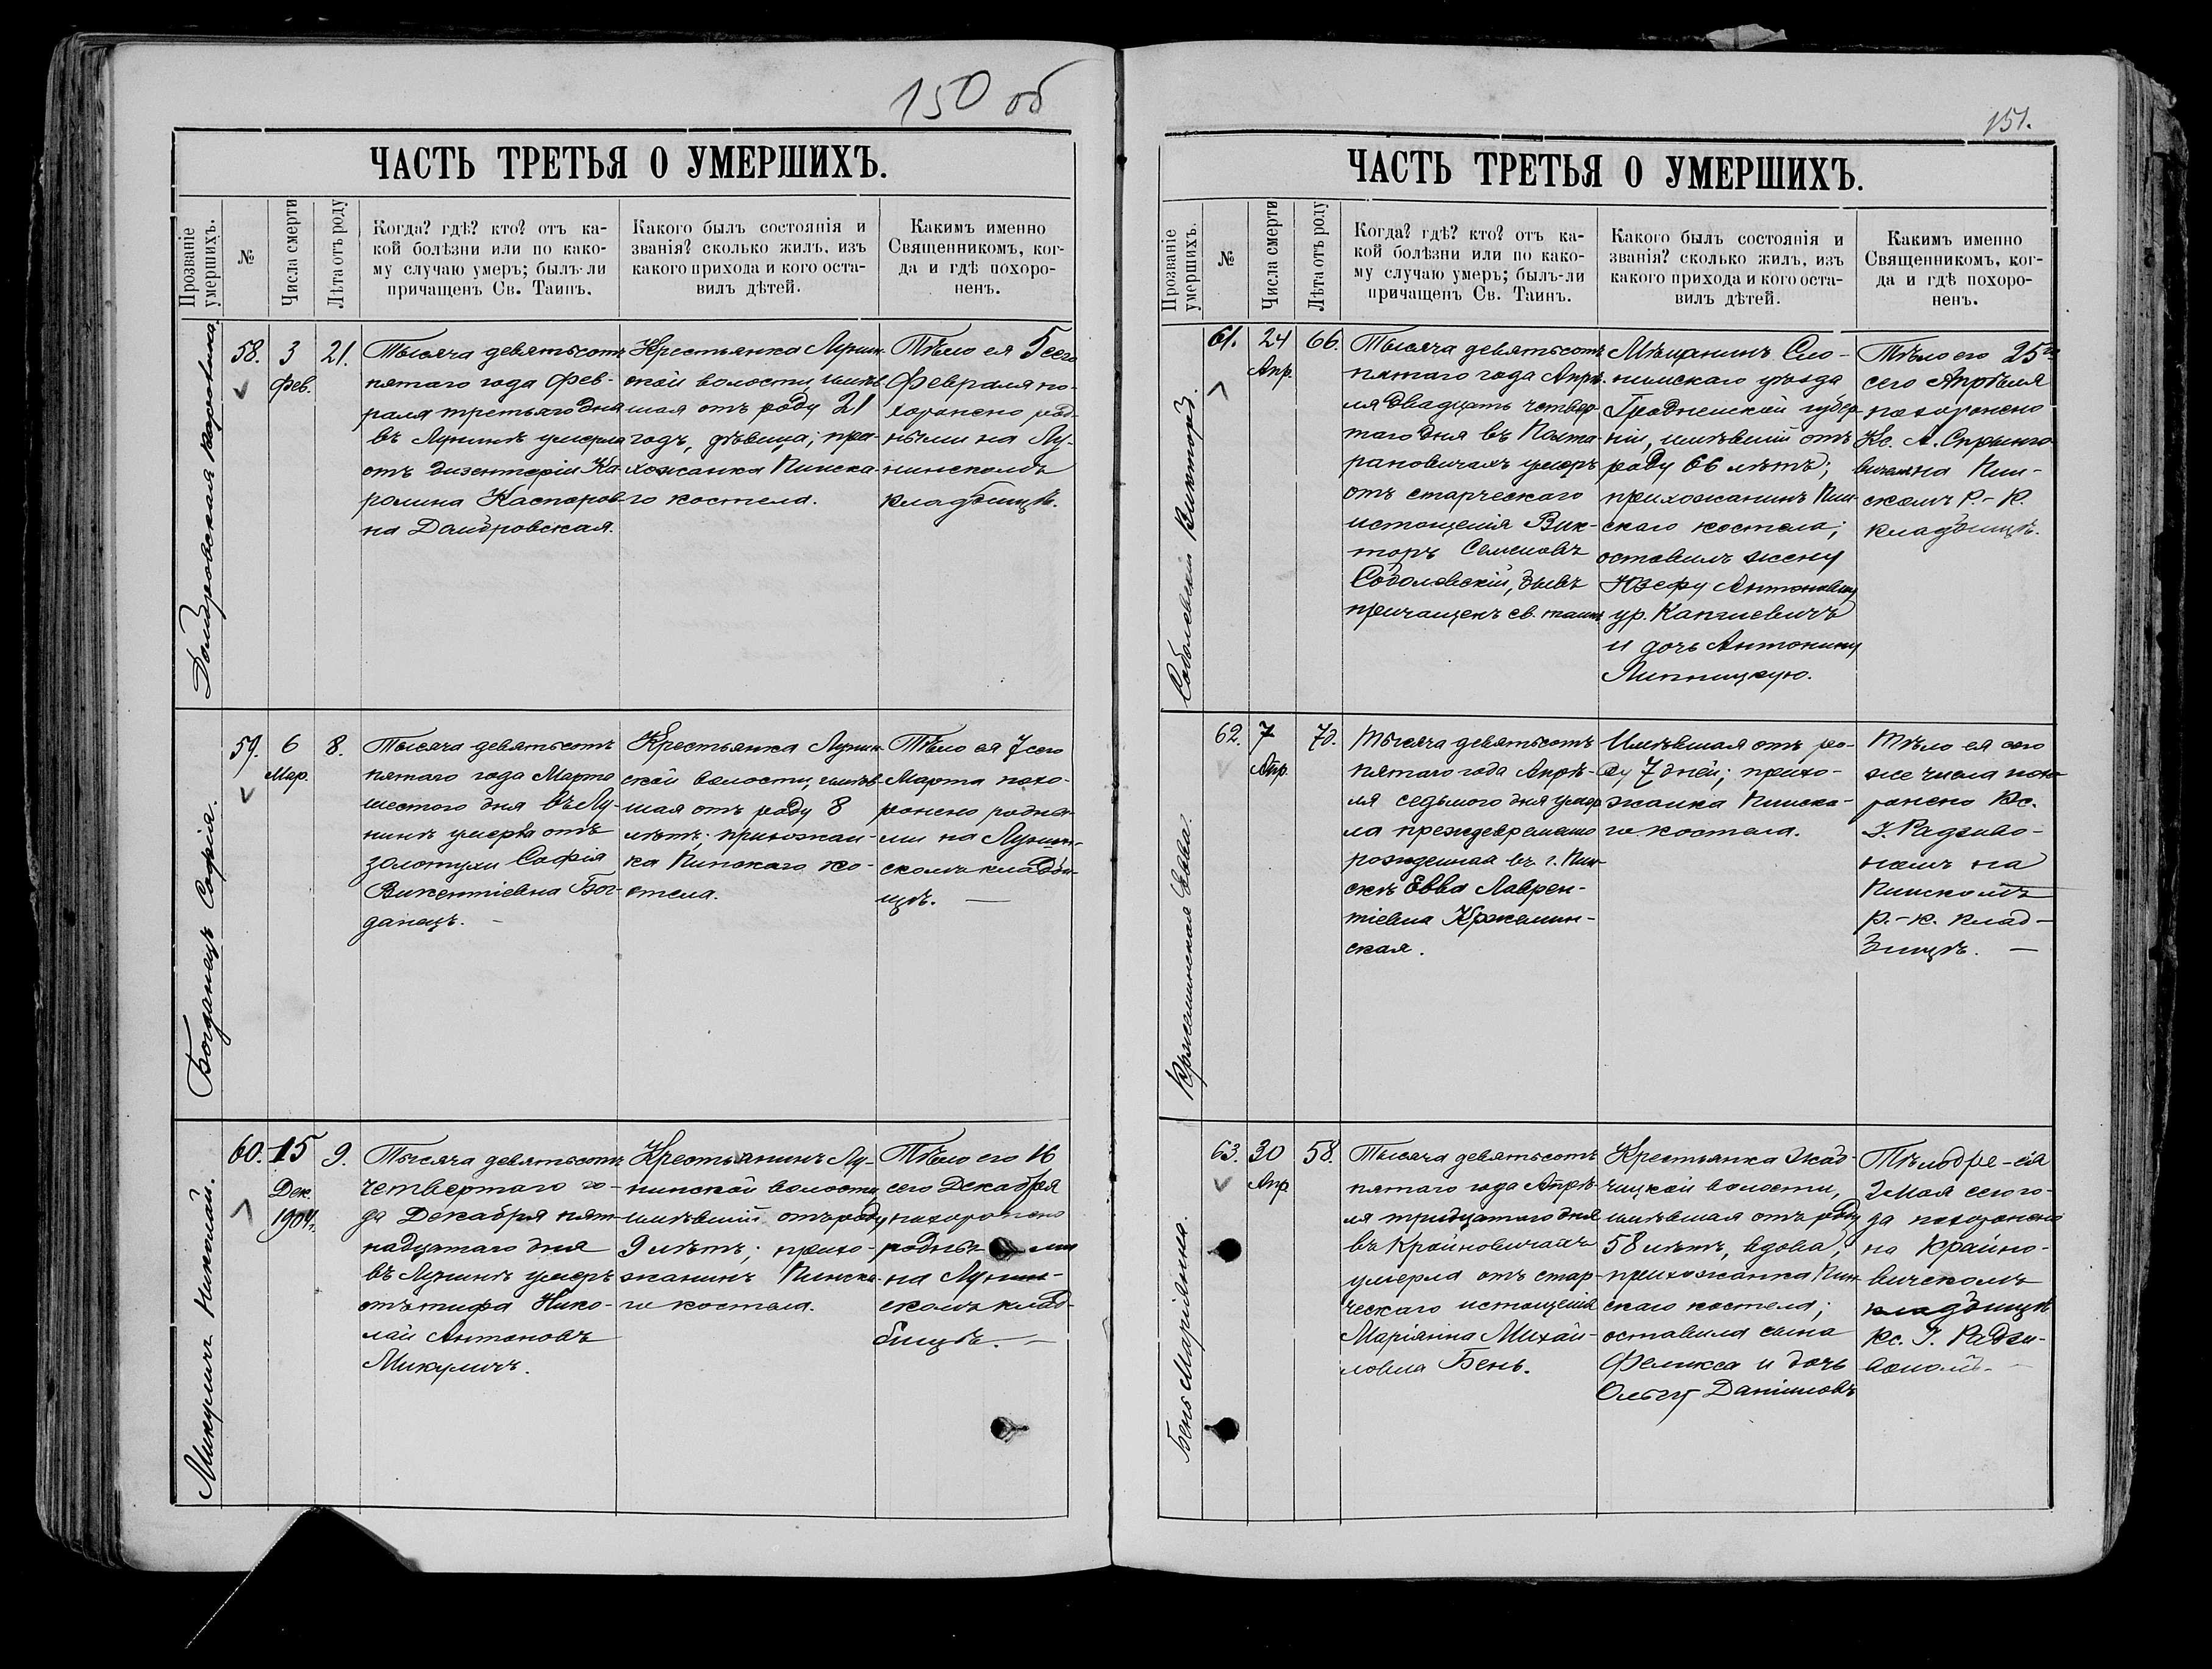 150 об
ЧАСТЬ ТРЕТЬЯ О УМЕРШИХЪ.
Прозваніе умершихъ.
№
Числа смерти
Лѣта отъ роду
Когда? гдѣ? кто? отъ ка-
кой болѣзни или по како-
му случаю умеръ; былъ-ли
причащенъ Св. Таинъ.
Какого былъ состоянія и
званія? сколько жилъ, изъ
какого прихода и кого оста-
вилъ дѣтей.
Какимъ именно
Священникомъ, ког-
да и гдѣ похоро-
ненъ.
Домбровская Каролина.
58.
3
Фев.
21.
Тысяча девятьсотъ
пятаго года Фев-
раля третьяго дня
въ Лунинѣ умерла
отъ дизентеріи Ка-
ролина Каспаров-
на Домбровская.
Крестьянка Лунин-
ской волости, имѣв-
шая отъ роду 21
годъ, дѣвица; при-
хожанка Пинска-
го костела.
Тѣло ея 5 сего
Февраля по-
хоронено род-
ными на Лу-
нинскомъ
кладбищѣ.
Богданецъ Софія.
59.
6
Мар.
8.
Тысяча девятьсотъ
пятаго года Марта
шестого дня въ Лу-
нинѣ умерла отъ
золотухи Софія
Викентіевна Бог-
данецъ. —
Крестьянка Лунин-
ской волости, имѣв-
шая отъ роду 8
лѣтъ; прихожан-
ка Пинскаго ко-
стела.
Тѣло ея 7 сего
Марта похо-
ронено родны-
ми на Лунин-
скомъ кладби-
щѣ. —
Микуличъ Николай.
60.
15
Дек.
1904 г.
9.
Тысяча девятьсотъ
четвертаго го-
да Декабря пят-
надцатаго дня
въ Лунинѣ умеръ
отъ тифа Нико-
лай Антоновъ
Микуличъ.
Крестьянинъ Лу-
нинской волости,
имѣвшій отъ роду
9 лѣтъ; прихо-
жанинъ Пинска-
го костела.
Тѣло его 16
сего Декабря
похоронено
родными
на Лунин-
скомъ клад-
бищѣ. —
151.
ЧАСТЬ ТРЕТЬЯ О УМЕРШИХЪ.
Прозваніе умершихъ.
№
Числа смерти
Лѣта отъ роду
Когда? гдѣ? кто? отъ ка-
кой болѣзни или по како-
му случаю умеръ; былъ-ли
причащенъ Св. Таинъ.
Какого былъ состоянія и
званія? сколько жилъ, изъ
какого прихода и кого оста-
вилъ дѣтей.
Какимъ именно
Священникомъ, ког-
да и гдѣ похоро-
ненъ.
Соболевскій Викторъ.
61.
24
Апр.
66.
Тысяча девятьсотъ
пятаго года Апрѣ-
ля двадцать четвер-
таго дня въ Похта-
рановичахъ умеръ
отъ старческаго
истощенія Вик-
торъ Семеновъ
Соболевскій, бывъ
причащенъ св. таинъ
Мѣщанинъ Сло-
нимскаго уѣзда
Гродненской губер-
ніи, имѣвшій отъ
роду 66 лѣтъ;
прихожанинъ Пин-
скаго костела;
оставилъ жену
Юзефу Антоновну
ур. Капгиевичъ
и дочь Антонину
Липницкую.
Тѣло его 25го
сего Апрѣля
похоронено
Кс. А. Спринго-
вичемъ на Пин-
скомъ Р.-К.
кладбищѣ.
Кржеминская Евва.
62.
7
Апр.
7 д.
Тысяча девятьсотъ
пятаго года Апрѣ-
ля седьмого дня умер-
ла преждевременно
рожденная въ г. Пин-
скѣ Евва Лаврен-
тіевна Кржемин-
ская.
Имѣвшая отъ ро-
ду 7 дней; прихо-
жанка Пинска-
го костела.
Тѣло ея сего
же числа похо-
ронено Кс.
I. Радзиво-
номъ на
Пинскомъ
Р.-К. клад-
бищѣ. —
Бень Маріанна.
63.
30
Апр
58.
Тысяча девятьсотъ
пятаго года Апрѣ-
ля тридцатаго дня
въ Крайновичахъ
умерла отъ стар-
ческаго истощенія
Маріанна Михай-
ловна Бень.
Крестьянка
чицкой волости,
имѣвшая отъ роду
58 лѣтъ, вдова;
прихожанка Пин-
скаго костела;
оставила сына
Феликса и дочь
Ольгу Даніиловъ
Тѣло ея
2 Мая сего го-
да похоронено
на Крайно-
вичскомъ
кладбищѣ
Кс. I. Радзи-
вономъ. —